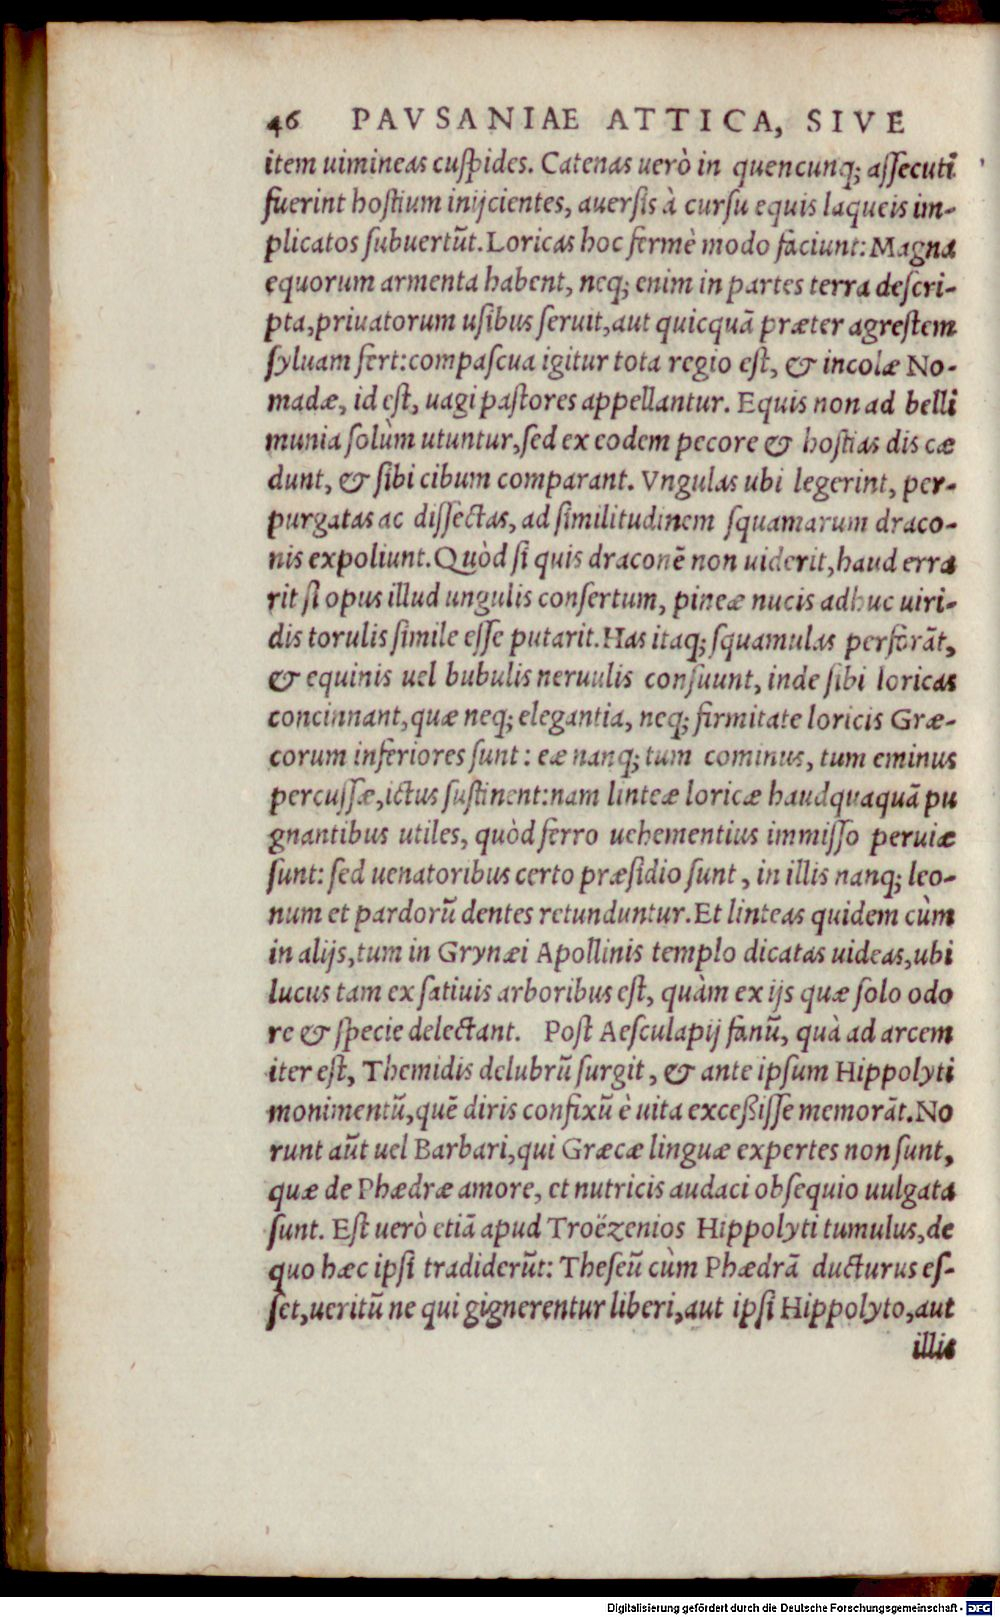 46 PAVSANIAE ATTICA, SIVE
item uimineas cuſpides. Catenas uerò in quencunq; aſſecuti
fuerint hoſtium inijcientes, auerſis à curſu equis laqueis im-
plicatos ſubuertũt. Loricas hoc fermè modo faciunt: Magna
equorum armenta habent, neq; enim in partes terra deſcri-
pta, priuatorum uſibus ſeruit, aut quicquã præter agreſtem
ſyluam fert: compaſcua igitur tota regio eſt, & incolæ No-
madæ, id eſt, uagi paſtores appellantur. Equis non ad belli
munia ſolùm utuntur, ſed ex eodem pecore & hoſtias dis cæ
dunt, & ſibi cibum comparant. Vngulas ubi legerint, per-
purgatas ac diſſectas, ad ſimilitudinem ſquamarum draco-
nis expoliunt. Quòd ſi quis draconẽ non uiderit, haud erra
rit ſi opus illud ungulis conſertum, pineæ nucis adhuc uiri-
dis torulis ſimile eſſe putarit. Has itaq; ſquamulas perforãt,
& equinis uel bubulis neruulis conſuunt, inde ſibi loricas
concinnant, quæ neq; elegantia, neq; firmitate loricis Græ-
corum inferiores ſunt: eæ nanq; tum cominus, tum eminus
percuſſæ, ictus ſuſtinent: nam linteæ loricæ haudquaquã pu
gnantibus utiles, quòd ferro uehementius immiſſo peruiæ
ſunt: ſed uenatoribus certo præſidio ſunt, in illis nanq; leo-
num et pardorũ dentes retunduntur. Et linteas quidem cùm
in alijs, tum in Grynæi Apollinis templo dicatas uideas, ubi
lucus tam ex ſatiuis arboribus eſt, quàm ex ijs quæ ſolo odo
re & ſpecie delectant. Poſt Aeſculapij fanũ, quà ad arcem
iter eſt, Themidis delubrũ ſurgit, & ante ipſum Hippolyti
monimentũ, quẽ diris confixũ è uita exceßiſſe memorãt. No
runt aũt uel Barbari, qui Græcæ linguæ expertes non ſunt,
quæ de Phædræ amore, et nutricis audaci obſequio uulgata
ſunt. Eſt uerò etiã apud Troëzenios Hippolyti tumulus, de
quo hæc ipſi tradiderũt: Theſeũ cùm Phædrã ducturus eſ-
ſet, ueritũ ne qui gignerentur liberi, aut ipſi Hippolyto, aut
illis
Digitalisierung gefördert durch die Deutsche Forschungsgemeinschaft - DFG